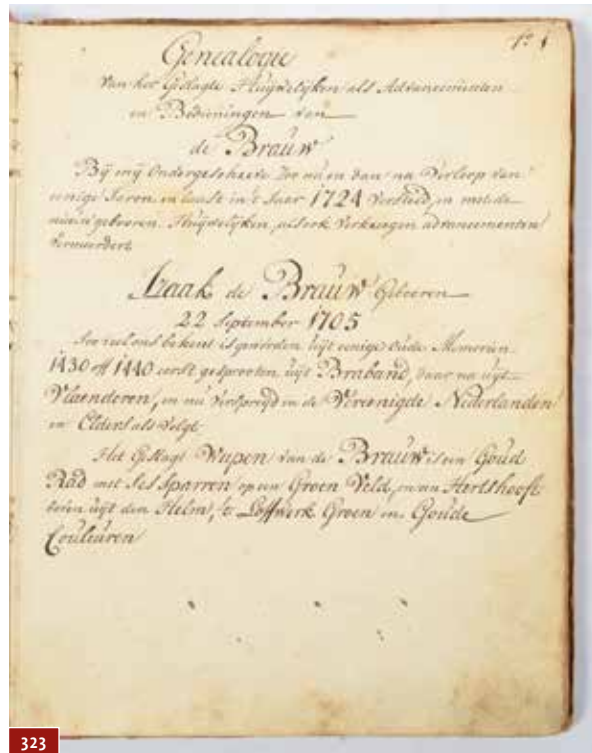 Fo 1
Genealogie
van het Geslagte Huijwelijken als Advancementen
en Bedieningen van
de Brauw
Bij mij Ondergeschreeve Zoo nu en dan na Verloop van
eenige Jaren, en laast in 't Jaar 1724 Versteld, en met de
nieuw gebooren Huijwelijken, als ook Verkreegen advancementen
Vermeerdert
Izaak de Brauw Gebooren
22 September 1705
Soo veel ons bekent is geworden uijt eenige Oude Memorien
1430 off 1440 eerst gesprooten uijt Braband, daar na uijt
Vlaenderen, en nu Verspreijd in de Vereenigde Nederlanden
en Elders als Volgt
Het Geslagt Wapen van de Brauw is een Goud
Rad met Ses Sparren op een Groen Veld, en een Hertshooft
boven uijt den Helm, 't Loffwerk Groen en Goude
Couleuren
323